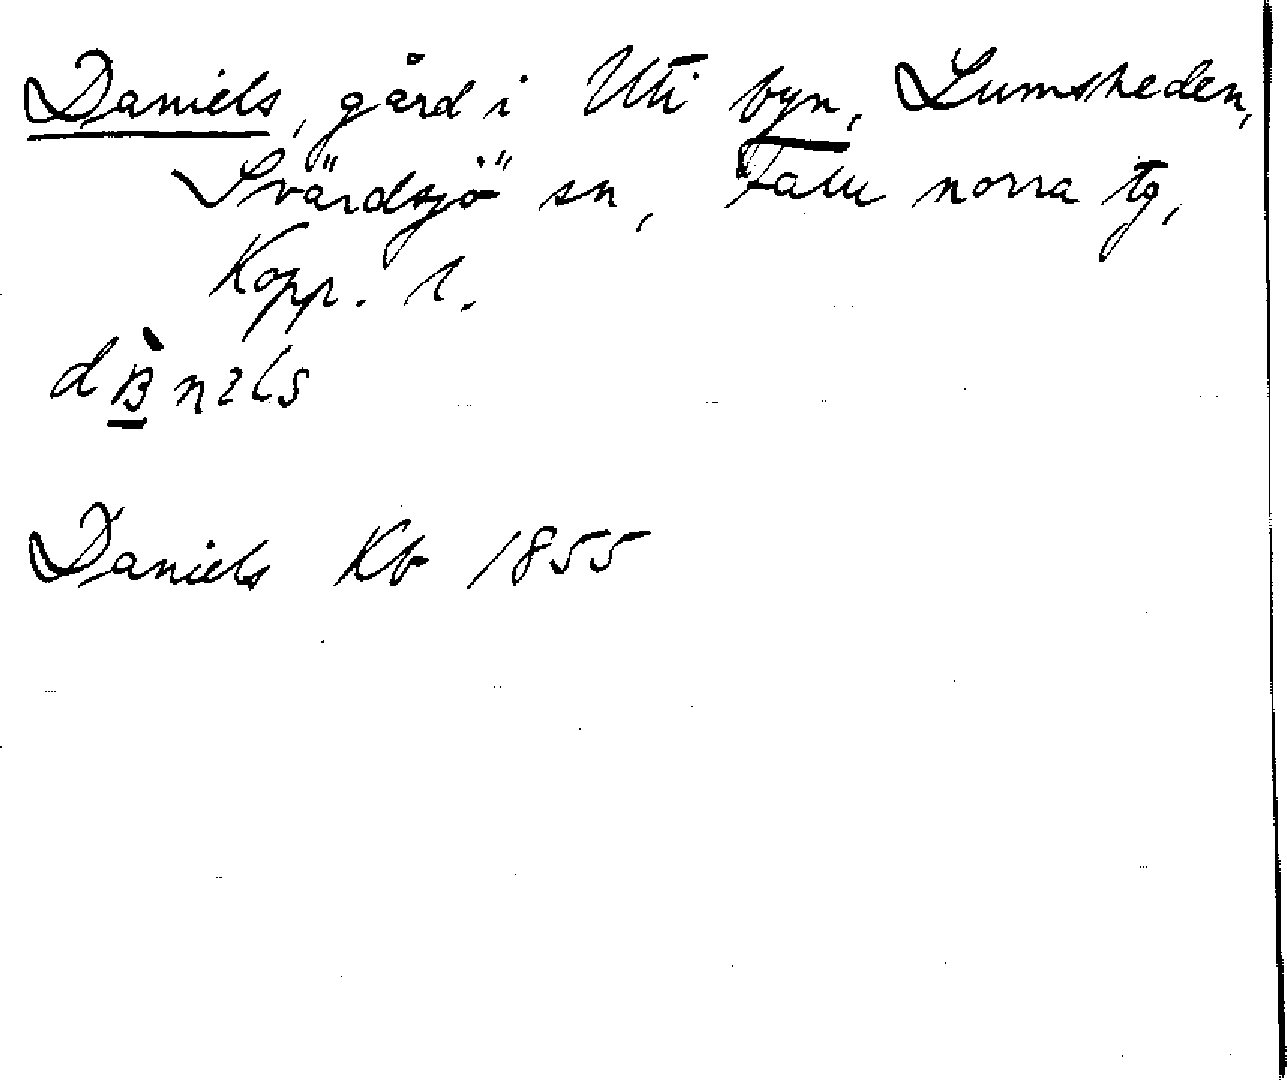 Daniels, gård i Uti byn, Lumsheden,
Svärdsjö sn, Falu norra tg,
Kopp. l.
Daniels Kb 1855